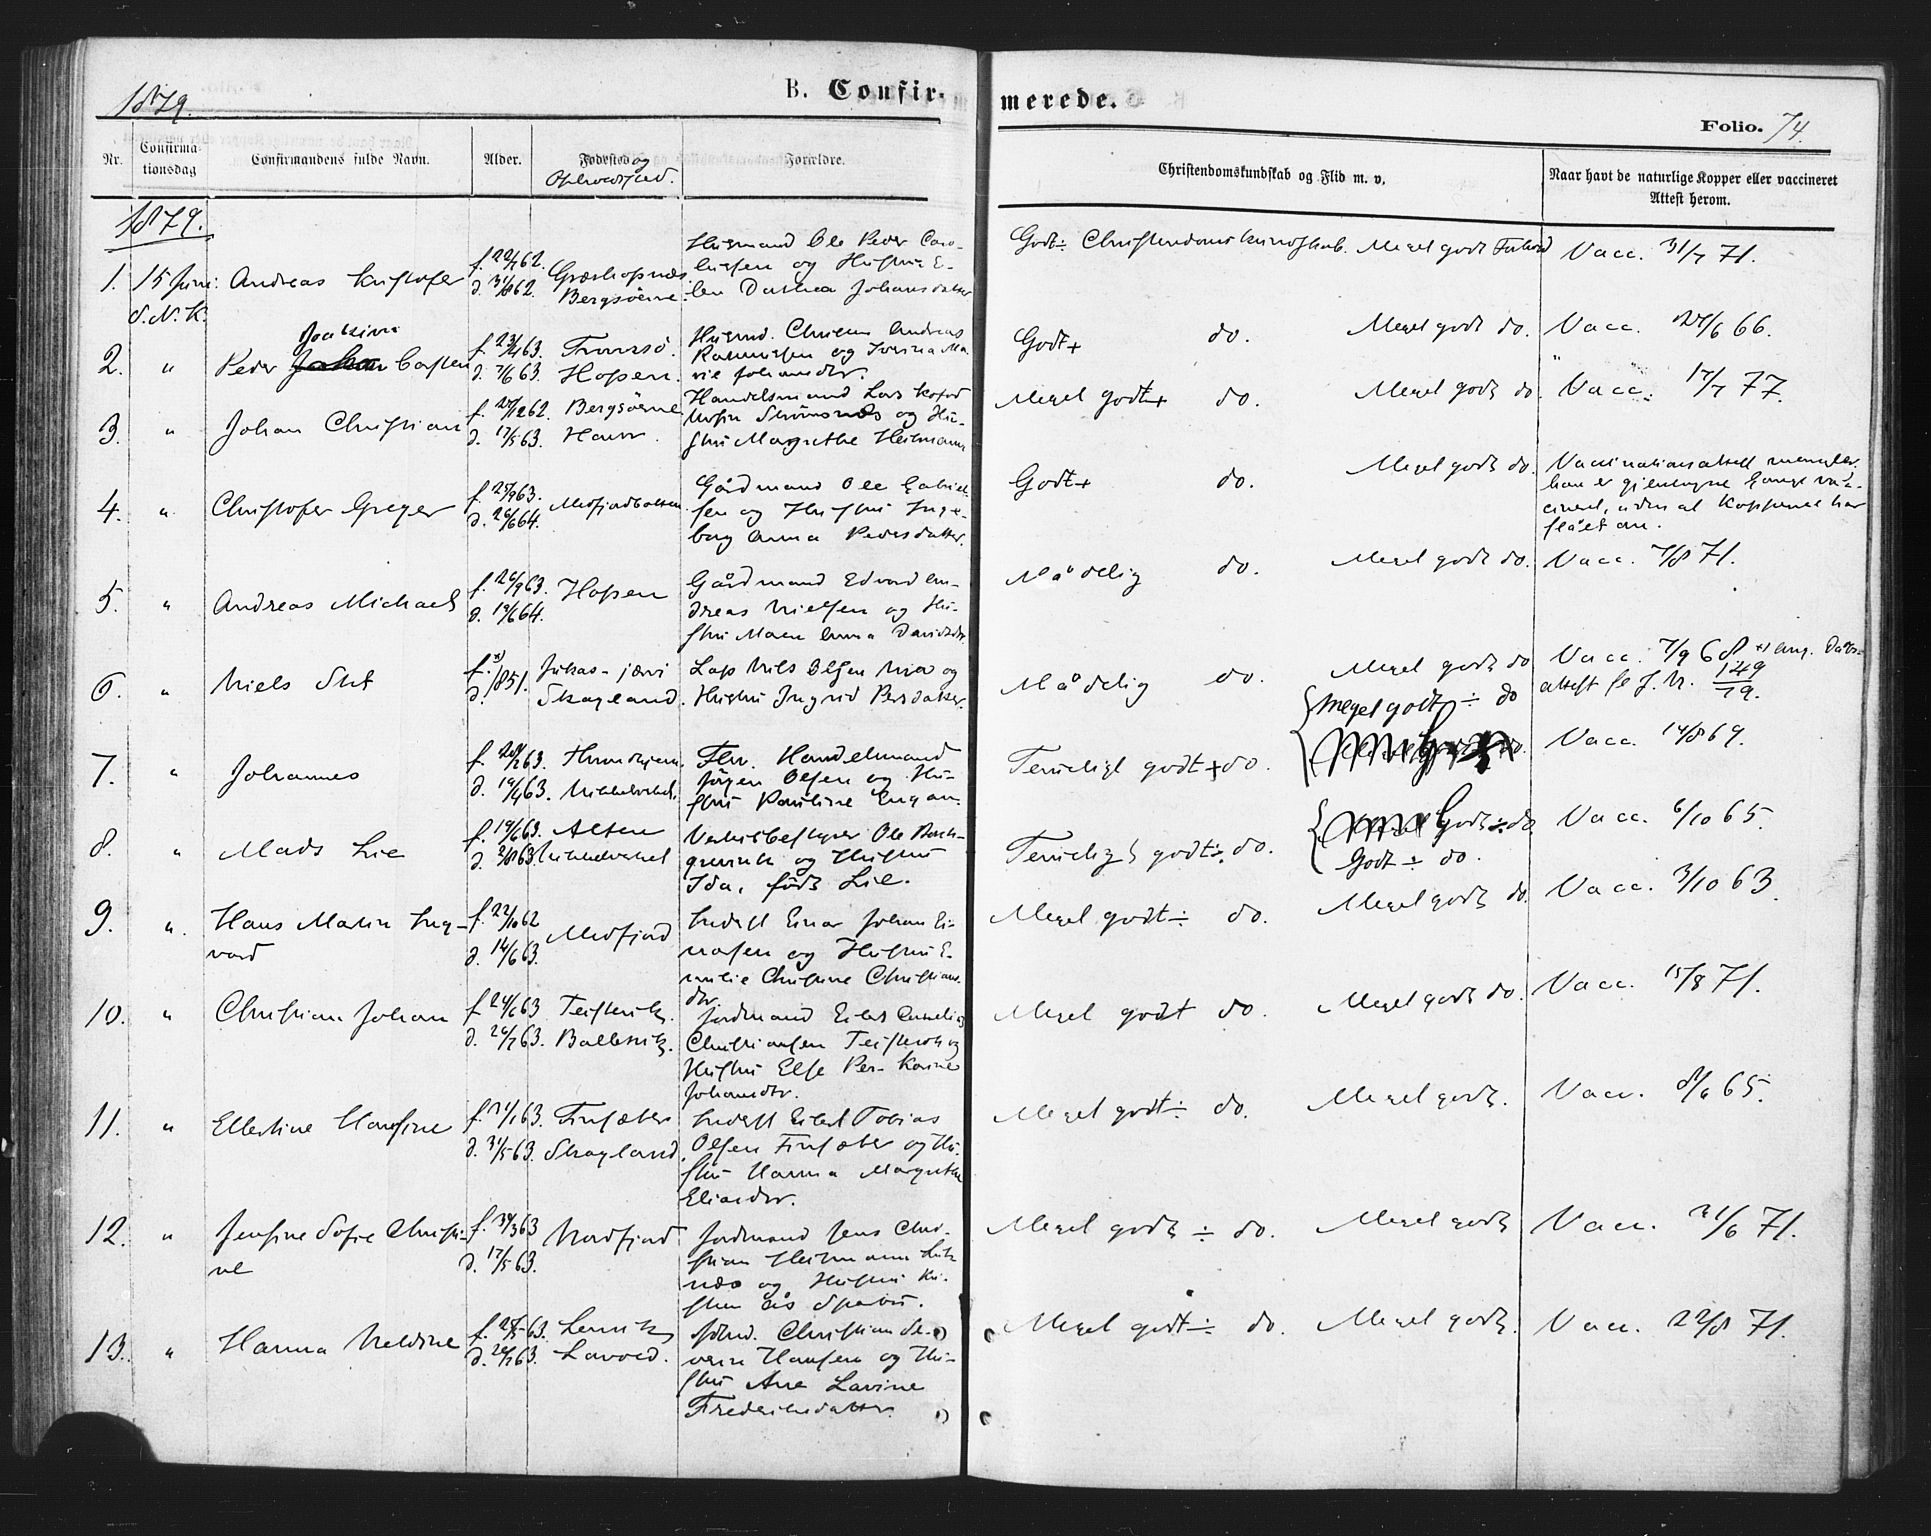 1879.
B. Confir-
merede.
Folio. 74.
Nr.
Confirma-
tionsdag
Confirmandens fulde Navn.
Alder.
Fødested og
Opholdssted.
Forældre.
Christendomskundskab og Flid m. v.
Naar havt de naturlige Kopper eller vaccineret
Attest herom.
1879.
1. 15 Juni Andreas Kristofer
S.N.K.
Bergsöerne
Husmand Ole Peder
og Hustru E-
len Dorthea Johansdatter
Godt ÷ Christendomskundskab. Meget godt Forhold
Vacc. 31/7 71.
2. " Peder Joakim
f. 23/4 63.
d. 7/6 63.
Tromsö.
Hopen.
Husmd. Andreas
Rasmussen og
Godt + do. Meget godt do.
Vacc. 66.
3. " Johan Christian
d. 17/5 63.
Bergsöerne
Havn.
Handelsmand Lars
og Hu-
stru Margrethe Heitmann
Meget godt + do. Meget godt do.
Vacc. 17/7 77.
4. " Christofer Greger
f. 25/9 63.
d. 26/6 64.
Medfjordbotten
Gårdmand Ole Gabriel-
sen og Hustru Inge-
borg Anna Pedersdatter.
Godt + do. Meget godt do.
Vaccinationsattest mangler,
han er gjentagne Gange vac-
cineret, uden at Kopperne har
slået an.
5. " Andreas Michael
f. 26/9 63.
d. 19/6 64.
Hopen
Gårdmand Edvard An-
dreas Nielsen og Hu-
stru Maren Anna Davidsdtr
Mådelig do. Meget godt do.
Vacc. 7/8 71.
6. " Niels
f. x)
d. 1851.
Jukas-järvi
Skogland.
Lap Nils Olsen og
Hustru Ingrid Persdatter.
Mådelig do. Meget godt do
Vacc. 7/9 68 x) ang. Dåbs-
attest se J. N. 149
79.
7. " Johannes
f. 63.
d. 19/4 63.
Fhv. Handelsmand
Jörgen Olsen og Hu-
stru Pauline
Temeligt godt + do. Meget godt ÷ do
Vacc. 14/8 69.
8. " Mads Lie
f. 19/6 63.
Alten
Ole
og Hustru
Ida, födt Lie.
Temeligt godt ÷ do.
Godt ÷ do.
Vacc. 6/10 65.
9. " Hans Martin Ing-
vard
f. 22/10 62
d. 14/6 63.
Medfjord
Inderst Einar Johan Ei-
narsen og Hustru E-
milie Christine Christians-
dtr.
Meget godt ÷ do. Meget godt do.
Vacc. 3/10 63.
10. " Christian Johan
f. 24/6 63
d. 26/7 63.
Teistevik.
Ballesvik.
Jordmand Eilert Cornelius
Christiansen Teistevik og
Hustru Else Per- Karine
Johansdtr.
Meget godt do. Meget godt do.
Vacc. 15/8 71.
11. " Ellertine Hansine
d. 31/5 63.
Finsæter
Skogland
Inderst Eilert Tobias
Olsen Finsæter og Hu-
stru Hanna Margrethe
Eliasdtr.
Meget godt ÷ do. Meget godt.
Vacc. 8/6 65.
12. " Jensine Sofie Christi-
ne
d. 17/5 63.
Nordfjord
Jordmand Jens Chri-
stian Heitmann
og Hustru Kri-
stine
Meget godt ÷ do. Meget godt
Vacc. 21/6 71.
13. " Hanna Meldine
Lenvik
Lavold.
Christian Se-
verin Hansen og Hu-
stru Ane Lavine
Frederiksdatter.
Meget godt ÷ do. Meget godt.
Vacc. 22/8 71.